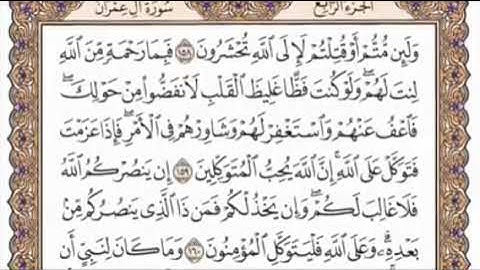 سُورَةُ آلِ عِمْرَانَ الجُزءُ الرَّابِعُ
وَلَئِن مُّتُّمْ أَوْ قُتِلْتُمْ لَإِلَى ٱللَّهِ تُحْشَرُونَ ١٥٨ فَبِمَا رَحْمَةٍ مِّنَ ٱللَّهِ
لِنتَ لَهُمْ ۖ وَلَوْ كُنتَ فَظًّا غَلِيظَ ٱلْقَلْبِ لَٱنفَضُّوا۟ مِنْ حَوْلِكَ ۖ
فَٱعْفُ عَنْهُمْ وَٱسْتَغْفِرْ لَهُمْ وَشَاوِرْهُمْ فِى ٱلْأَمْرِ ۖ فَإِذَا عَزَمْتَ
فَتَوَكَّلْ عَلَى ٱللَّهِ ۚ إِنَّ ٱللَّهَ يُحِبُّ ٱلْمُتَوَكِّلِينَ ١٥٩ إِن يَنصُرْكُمُ ٱللَّهُ
فَلَا غَالِبَ لَكُمْ ۖ وَإِن يَخْذُلْكُمْ فَمَن ذَا ٱلَّذِى يَنصُرُكُم مِّنۢ
بَعْدِهِۦ ۗ وَعَلَى ٱللَّهِ فَلْيَتَوَكَّلِ ٱلْمُؤْمِنُونَ ١٦٠ وَمَا كَانَ لِنَبِىٍّ أَن